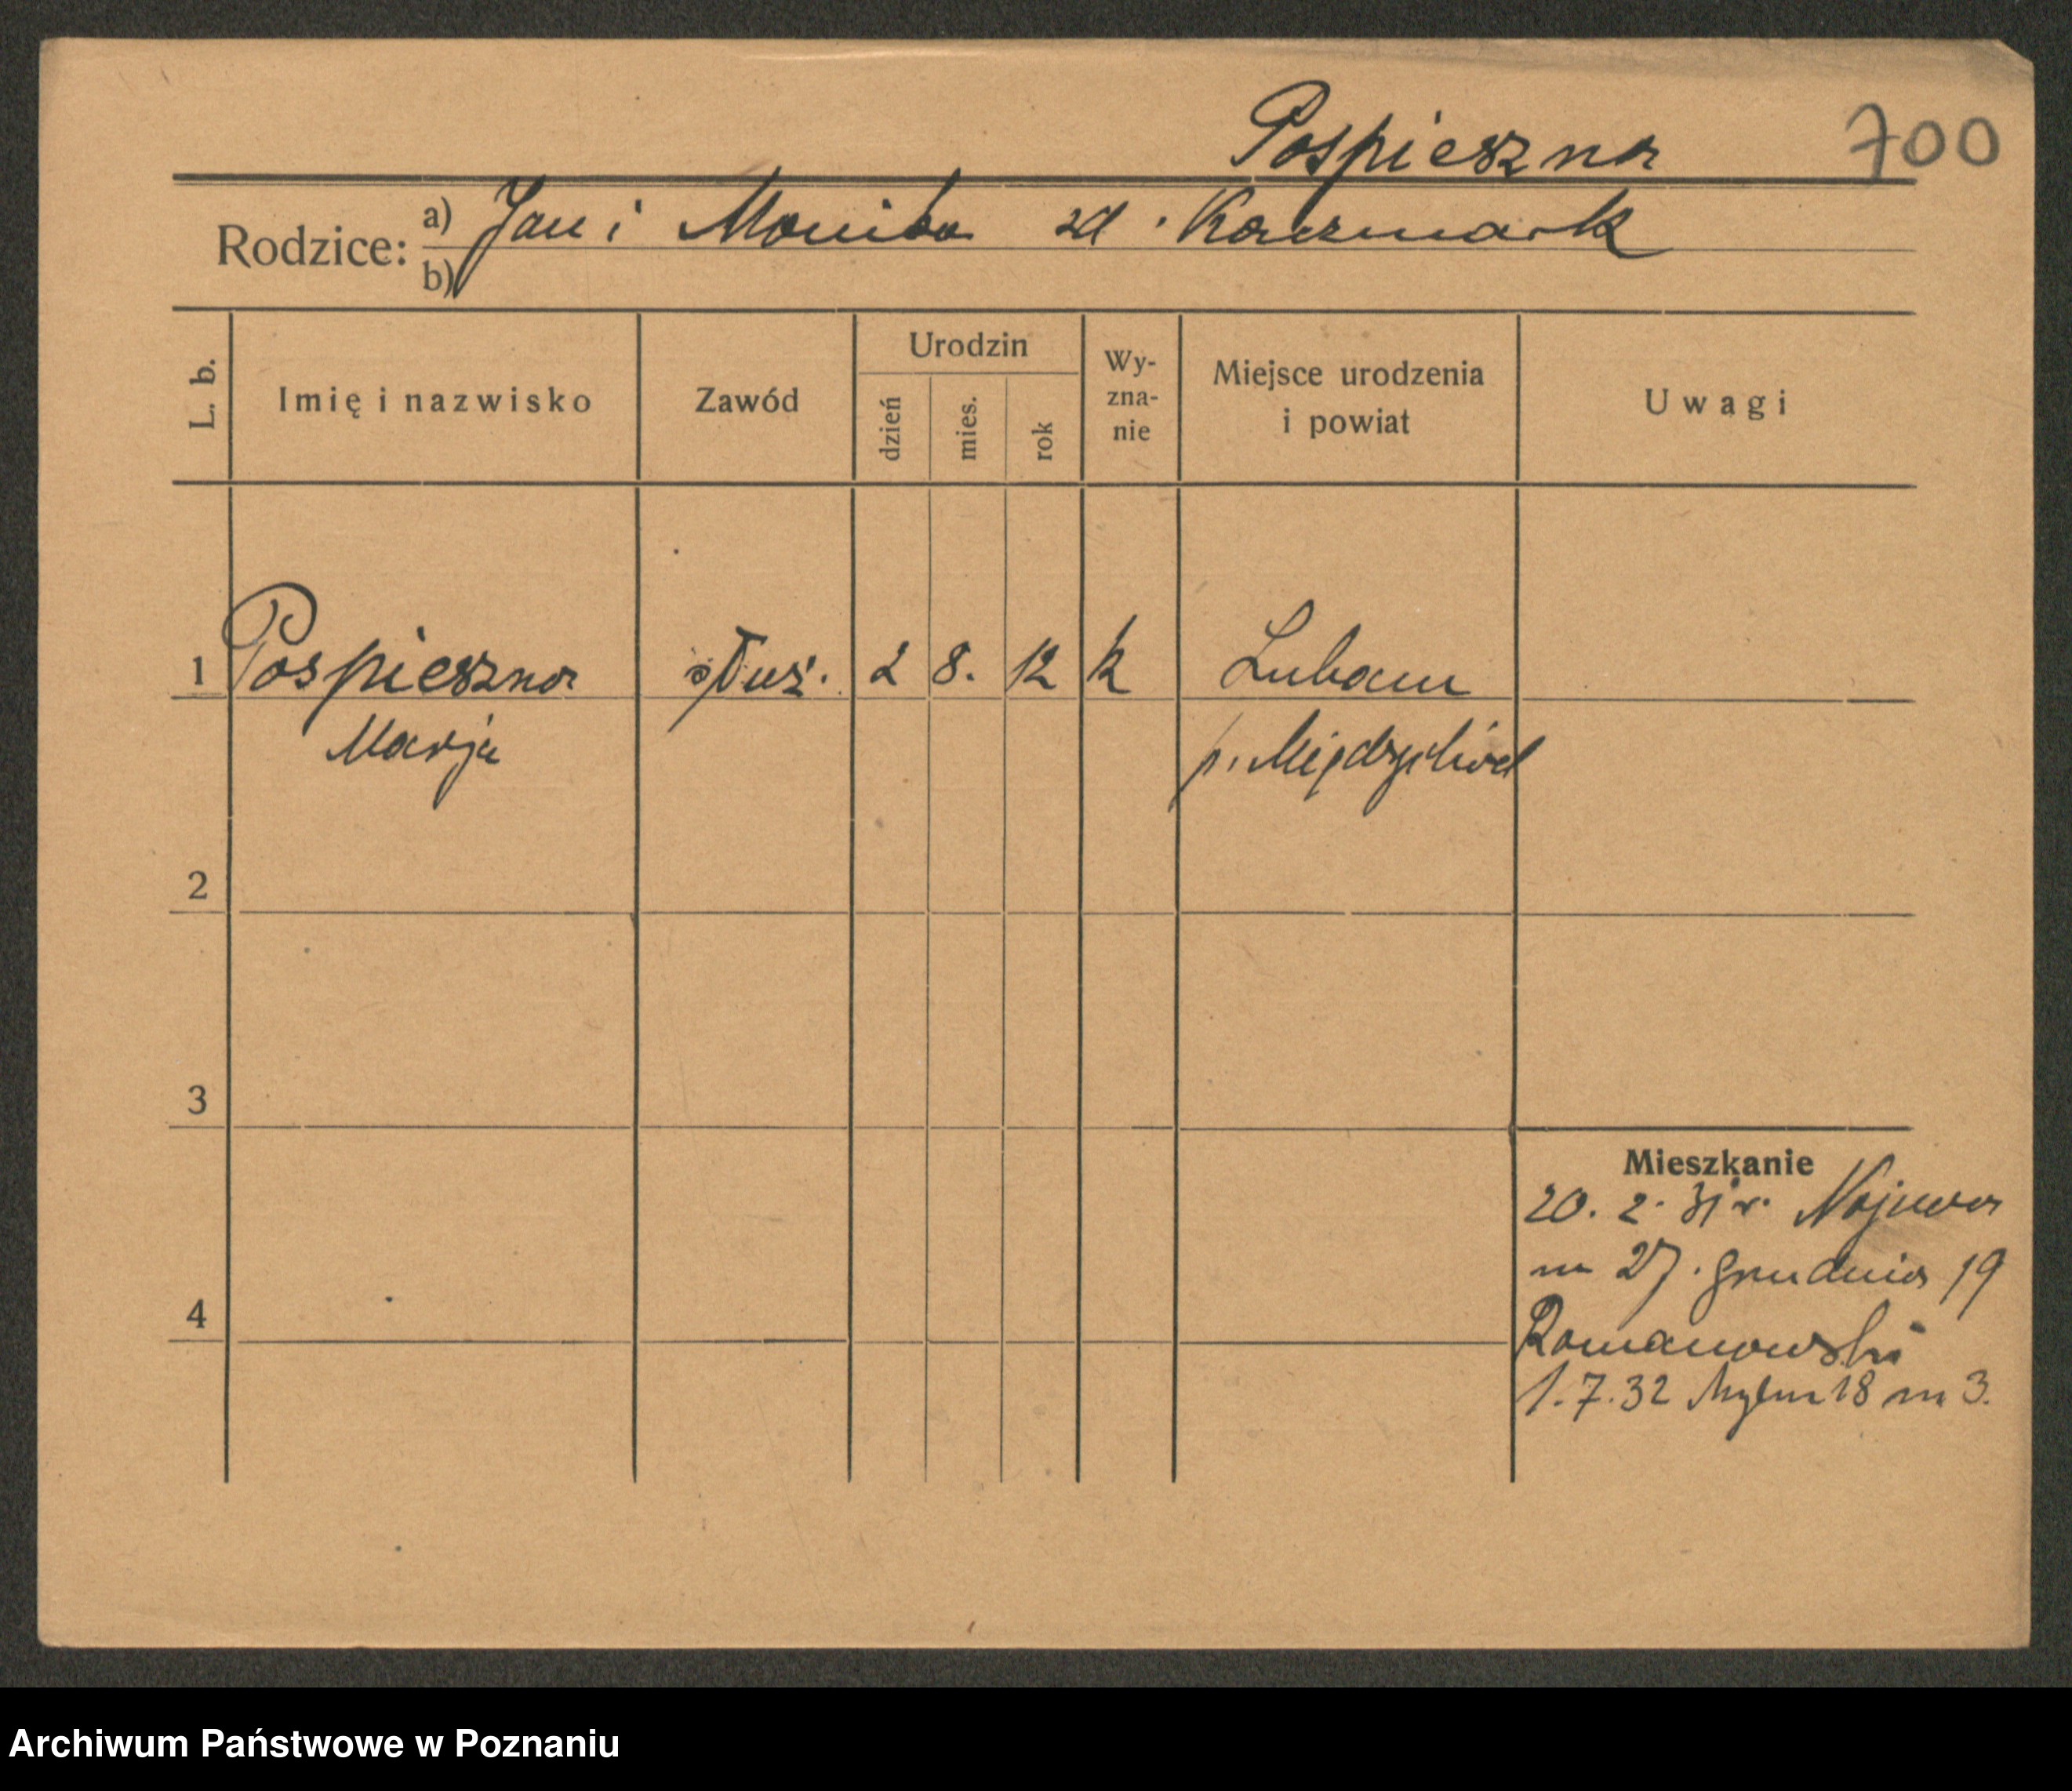 Pospieszna 700
Rodzice: a) Jan i Monika zd. Kaczmark
b)
L. b. Imię i nazwisko Zawód Urodzin dzień mies. rok Wy-zna-nie Miejsce urodzenia i powiat Uwagi
1 Pospieszna służ. 2 8. 12 k Lubosz
Marja p. Międzychód
2
3
Mieszkanie
20. 2. 31 r.
m 27. grudnia 19
4
Romanowski
1.7.32 18 m 3.
Archiwum Państwowe w Poznaniu